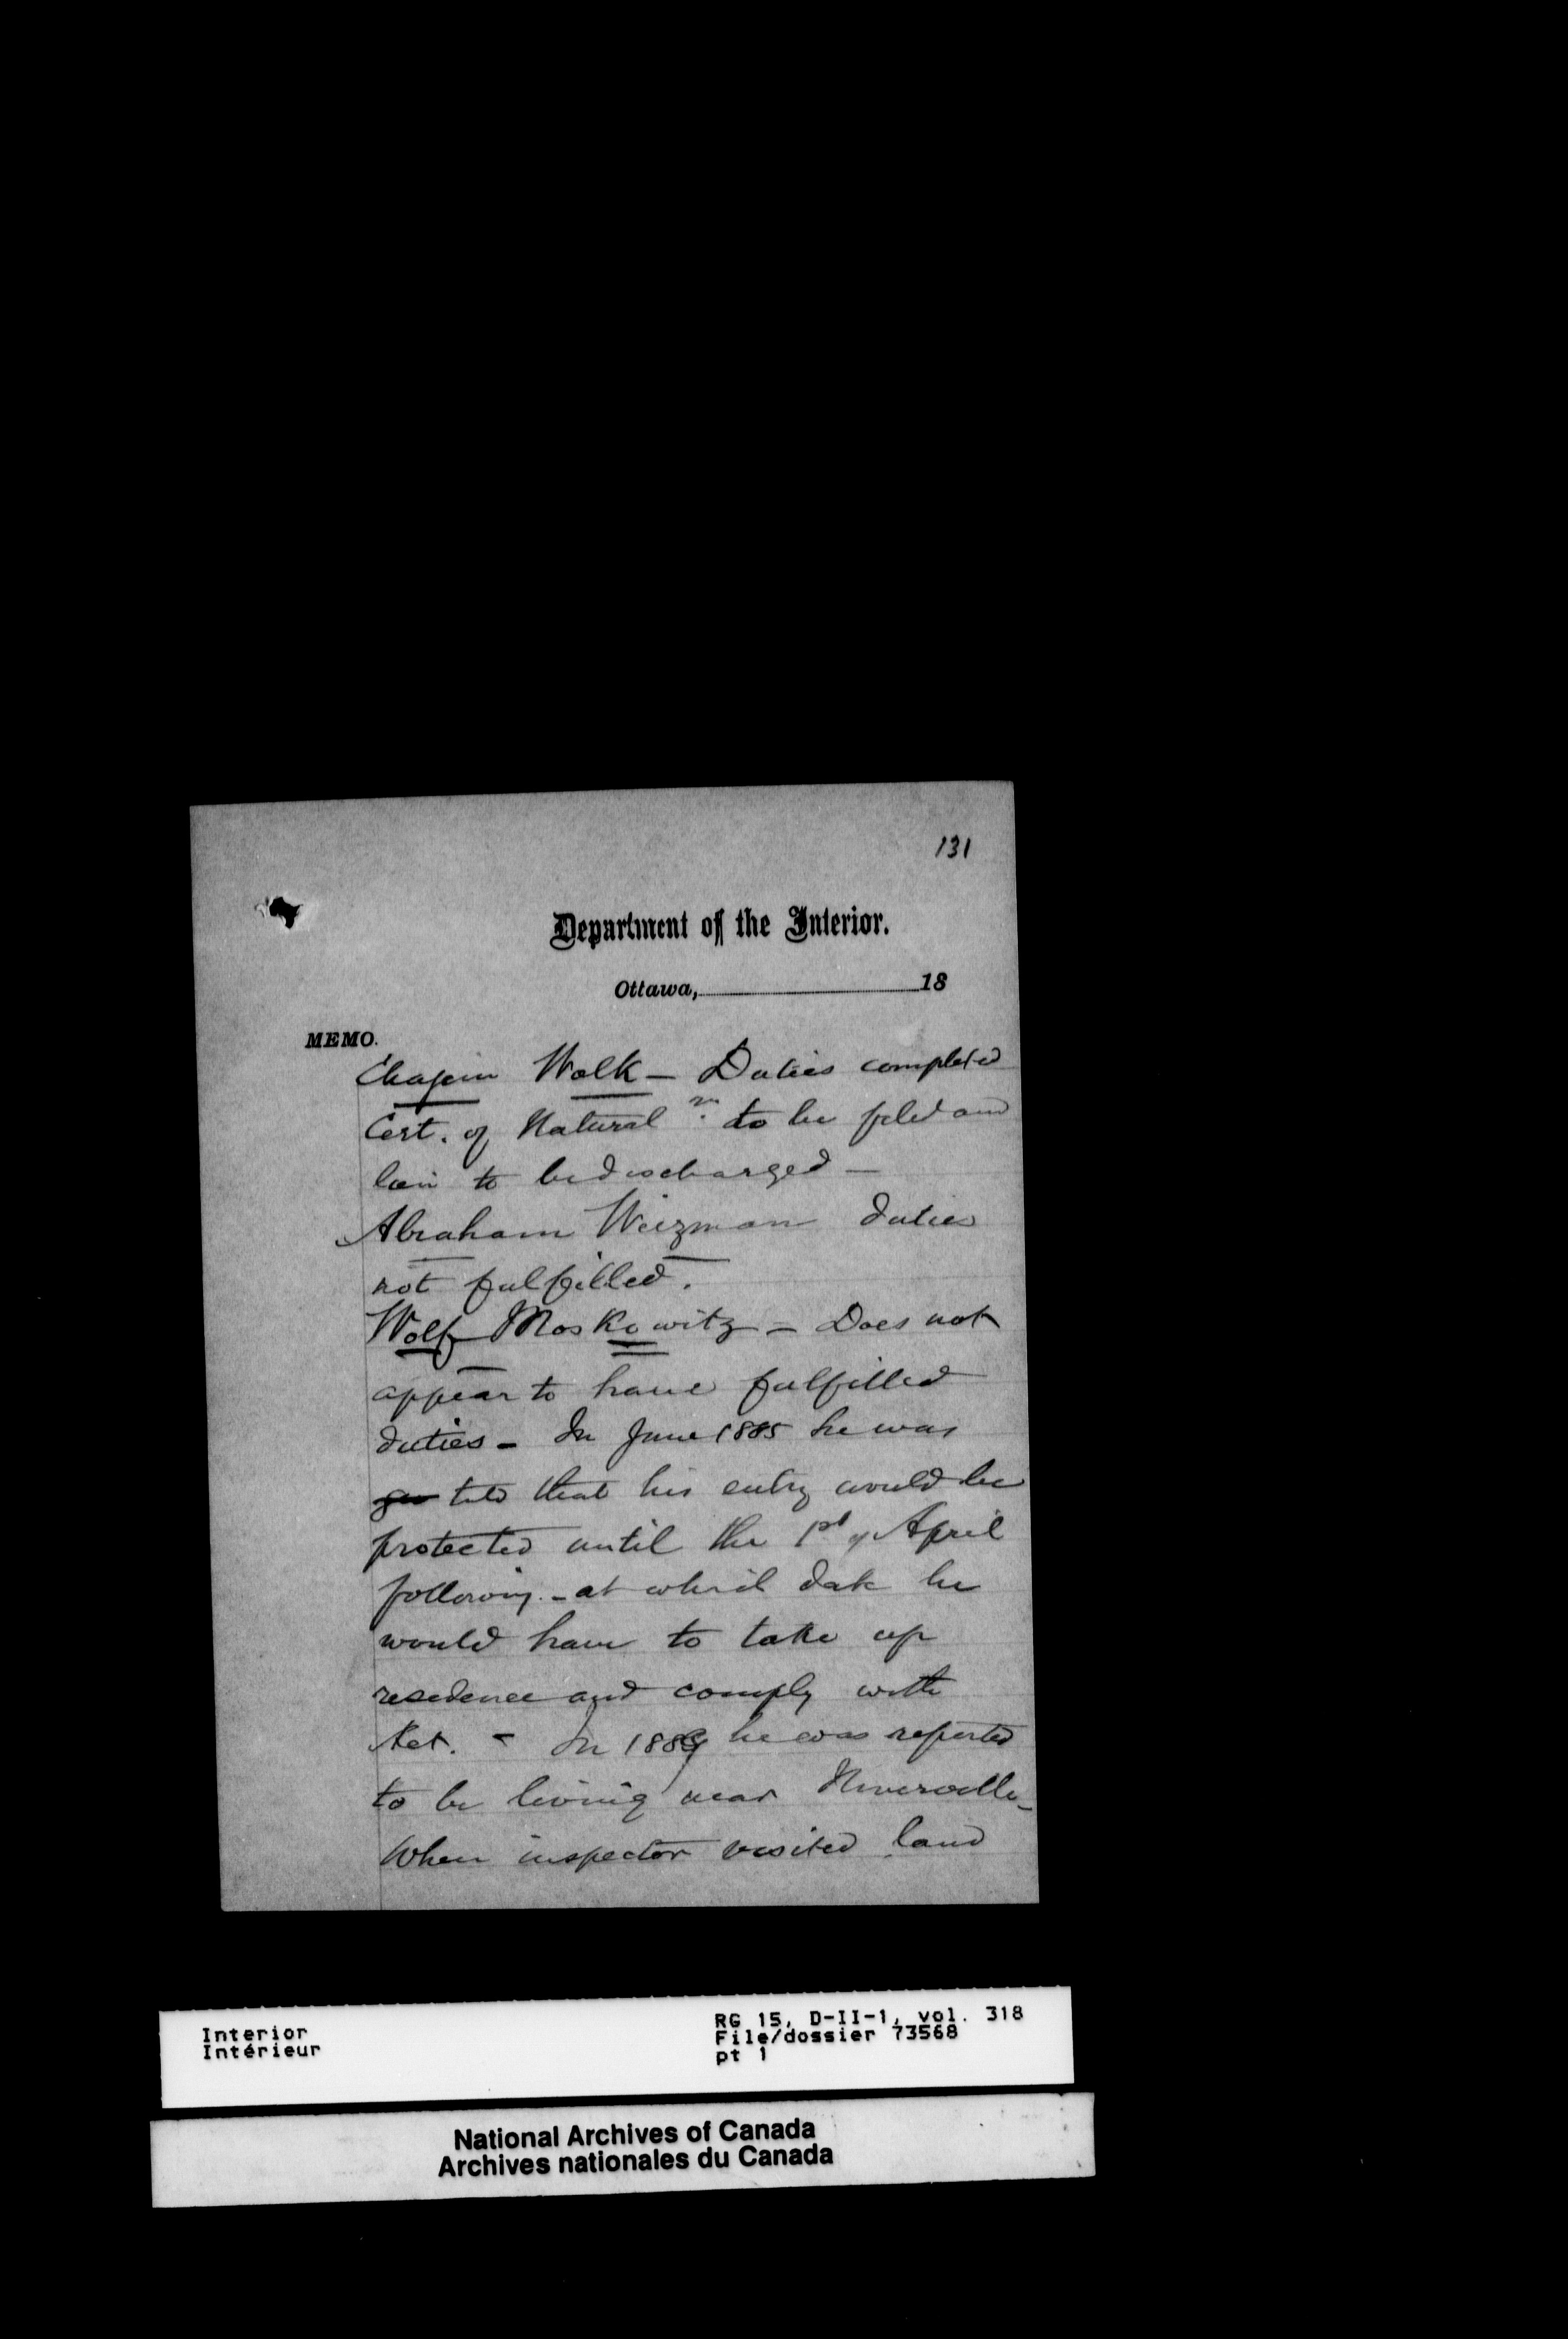 131
Department of the Interior.
Ottawa, 18
MEMO.
Chajim Wolk - Duties completed
Cert. of Natural n. to be filed and
lien to be discharged -
Abraham Weizman duties
not fulfilled.
Wolf Moskowitz - Does not
appear to have fulfilled
duties - In June 1885 he was
told that his entry would be
protected until the 1st of April
following - at which date he
would have to take up
residence and comply with
Act. - In 1889 he was reported
to be living near Niverville -
When inspector visited land
Interior
Intérieur
RG 15, D-II-1, vol. 318
File/dossier 73568
pt 1
National Archives of Canada
Archives nationales du Canada